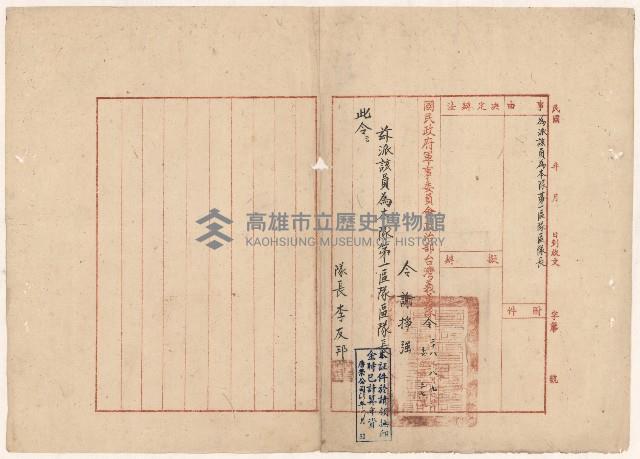 民國　年　月　日到收文　字第　號
事由
為派該員為本隊第一區隊區隊長
附件
決定辦法
擬辦
國民政府軍事委員會政治部台灣義勇隊令
令 謝掙強
茲派該員為本隊第一區隊區隊長
此令
隊長 李友邦
本証件於請領撫卹
金時已計算年資
高雄市立歷史博物館
KAOHSIUNG MUSEUM OF HISTORY